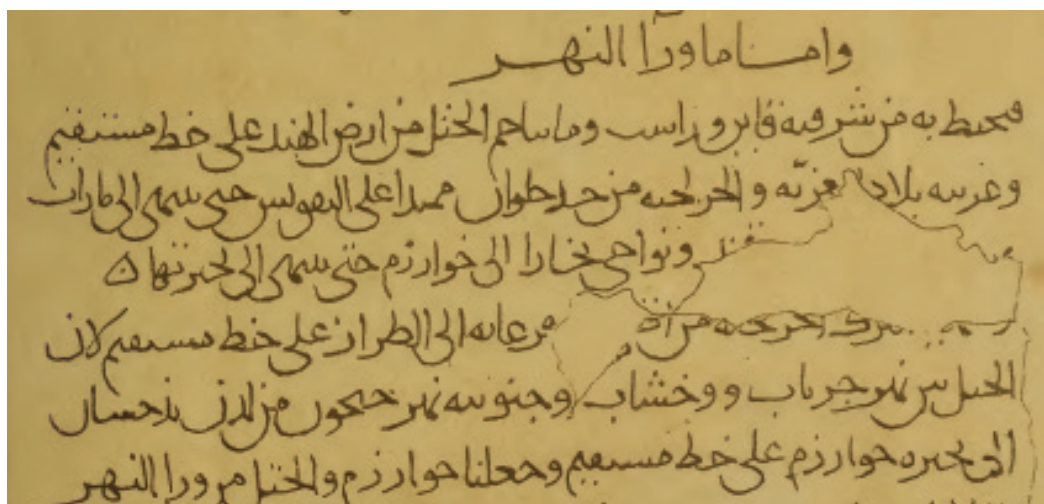 واما ماورآ النهر
فيحيط به من شرقيه فامر وراست وما يتاخم الختل من ارض الهند على خط مستقيم
وغربيه بلاد الغزيّه والخرلخيه من حد طوان ممتدا على التقويس حتى ينتهى الى فاراب
ونواحى بخارا الى خوارزم حتى ينتهى الى بحيرتها
الى الطراز على خط مستقيم لان
الختل بين نهر جرياب ووخشاب وجنوبيه نهر جيحون من لدن بذخشان
الى بحيره خوارزم على خط مستقيم وجعلنا خوارزم والختل من ورا النهر